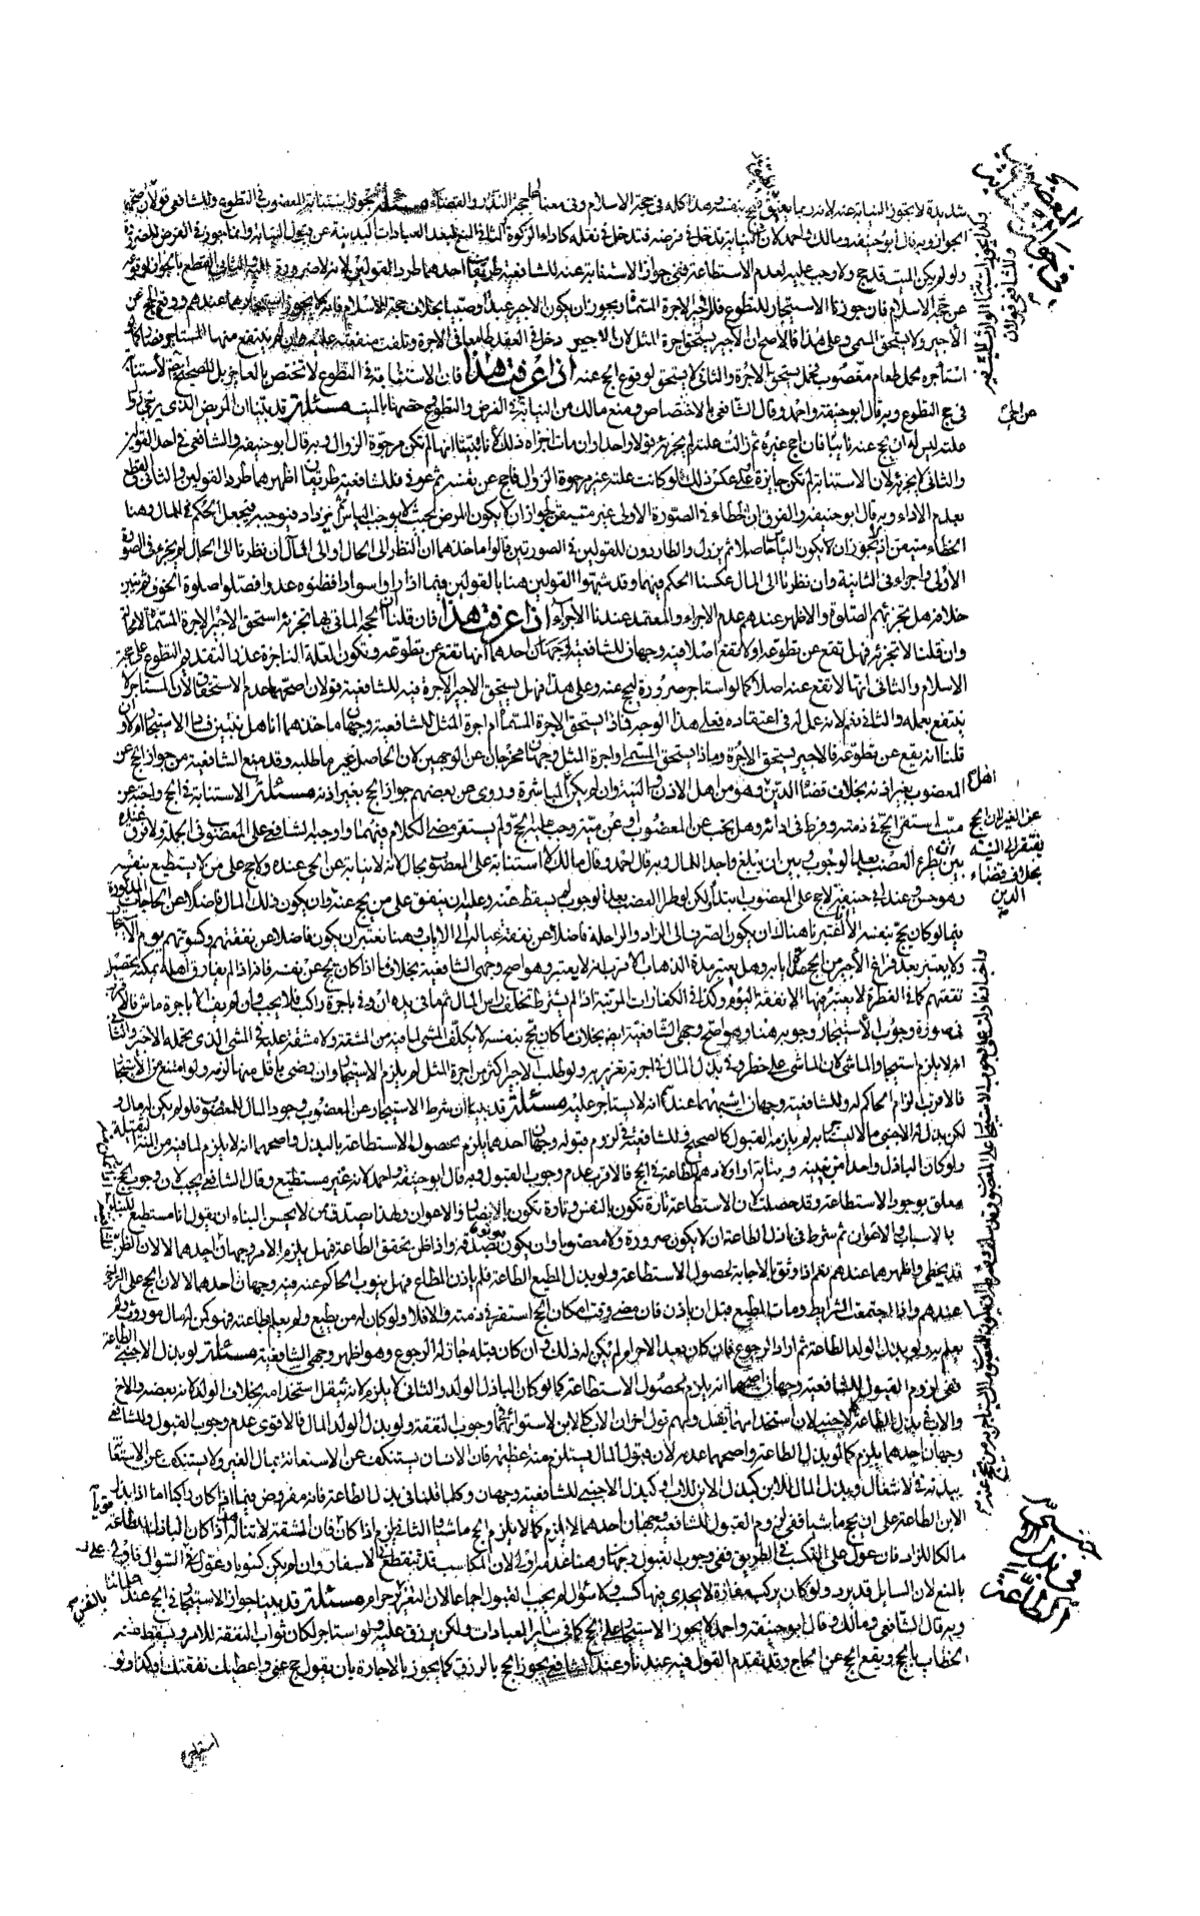 شديدة لا يجوز النيابة عنه لانه ربما يعيق فيحج بنفسه هذا كله في حجة الاسلام وفي معناها حجة النذر والقضاء مسئلة يجوز استنابة المعضوب في التطوع وللشافعي قولان اصحهما
الجواز وبه قال ابو حنيفة ومالك واحمد لان النيابة تدخل في فرضه فتدخل في نفله كاداء الزكوة الثاني المنع لبعد العبادات البدنية عن قبول النيابة وانما جوز في الفرض للضرورة
ولو لم يكن الميت قد حج ولا وجب عليه لعدم الاستطاعة ففي جواز الاستنابة عنه للشافعية طريقان احدهما طرد القولين لانه لا ضرورة اليه والثاني القطع بالجواز لوقوعه
عن حجة الاسلام فان جوزنا الاستيجار للتطوع فللاجير الاجرة المسماة ويجوز ان يكون الاجير عبدا او صبيا بخلاف حجة الاسلام فانه لا يجوز استيجارهما عندهم ووقع الحج عن
الاجير ولا يستحق المسمى وعلى هذا فالاصح ان الاجير يستحق اجرة المثل لان الاجير دخل في العقد طامعا في الاجرة وتلفت منفعته عليه وان لم ينتفع منها المستاجر فصار كما لو
استاجره لحمل طعام مغصوب فحمل يستحق الاجرة والثاني لا يستحق لوقوع الحج عنه اذا عرفت هذا فان الاستنابة في التطوع لا تختص بالعاجز بل للصحيح ايضا الاستنابة
في حج التطوع وبه قال ابو حنيفة واحمد وقال الشافعي بالاختصاص ومنع مالك من النيابة في الفرض والتطوع وخصهما بالميت مسئلة قد بينا ان المريض الذي يرتجى زوال
علته ليس له ان يحج عنه نائبا فان احج غيره ثم زالت علته لم يجزئه قولا واحدا وان مات اجزاه ذلك لانا تبينا انها لم تكن مرجوة الزوال وبه قال ابو حنيفة والشافعي في احد القولين
والثاني لا يجزئه لان الاستنابة لم تكن جايزة على عكس ذلك لو كانت علته غير مرجوة الزوال فاحج عن نفسه ثم عوفي فللشافعية طريقان اظهرهما طرد القولين والثاني القطع
بعدم الاداء وبه قال ابو حنيفة والفرق ان الخطاء في الصورة الاولى غير متيقن لجواز ان لا يكون المرض بحيث لا يوجب الياس ثم يزداد فيوجبه فيجعل الحكم في المال وهنا
الخطاء متيقن اذ لا يجوز ان لا يكون الياس حاصلا ثم يزول والطاردون للقولين في الصورتين قالوا ماخذهما ان النظر الى الحال او الى المآل ان نظرنا الى الحال لم يجزه في الصورة
الاولى واجزاه في الثانية وان نظرنا الى المآل عكسنا الحكم فيهما وقد شبهوا القولين هنا بالقولين فيما اذا راوا سوادا فظنوه عدوا فصلوا صلوة الخوف ثم تبين
خلافه هل تجزئهم الصلوة والاظهر عندهم عدم الاجزاء والمعتمد عندنا الاجزاء اذا عرفت هذا فان قلنا ان الحجة الماتي بها تجزئه استحق الاجير الاجرة المسماة لا محالة
وان قلنا لا تجزئه فهل تقع عن تطوعه او لا تقع اصلا فيه وجهان للشافعية احدهما انها تقع عن تطوعه وتكون العلة الناجزة عذرا لتقديم التطوع على حجة
الاسلام والثاني انها لا تقع عنه اصلا كما لو استاجر صرورة ليحج عنه وعلى هذا فهل يستحق الاجير الاجرة فيه للشافعية قولان اصحهما عدم الاستحقاق لان المستاجر لا
ينتفع بعمله والثاني نعم لانه عمل له في اعتقاده فعلى هذا الوجه فماذا يستحق الاجرة المسماة ام اجرة المثل للشافعية وجهان ماخذهما انا هل نتبين فساد الاستيجار ام لا وان
قلنا انه يقع عن تطوعه فالاجير يستحق الاجرة وماذا يستحق المسمى او اجرة المثل وجهان مخرجان عن الوجهين لان الحاصل غير ما طلبه وقد منع الشافعية من جواز الحج عن
المعضوب بغير اذنه بخلاف قضاء الدين وهو من اهل الاذن والنية وان لم يكن اهل المباشرة وروي عن بعضهم جواز الحج بغير اذنه مسئلة الاستنابة في الحج واجبة عن
ميت استقر الحج في ذمته وفرط في ادائه وهل يجب عن المعضوب او عن ميت وجب عليه الحج ولم يستقر مضى الكلام فيهما واوجبه الشافعي على المعضوب في الجملة ولا فرق عنده
بين ان يطرء العضب بعد الوجوب وبين ان يبلغ واجد المال وبه قال احمد وقال مالك لا استنابة على المعضوب بحال لانه لا نيابة عن الحي عنده ولا حج على من لا يستطيع بنفسه
وهو حسن وعند ابي حنيفة لا حج على المعضوب ابتداء لكن لو طرا العضب بعد الوجوب لم يسقط عنه وعليه ان ينفق على من يحج عنه وان يكون ذلك المال فاضلا عن الحاجات المذكورة
فيما لو كان يحج بنفسه الا انا اعتبرنا هناك ان يكون الصرف الى الزاد والراحلة فاضلا عن نفقة عياله الى الاياب وهنا نعتبر ان يكون فاضلا عن نفقتهم وكسوتهم يوم الاستيجار
ولا يعتبر بعد فراغ الاجير من الحج مدة ايابه وهل يعتبر مدة الذهاب الاقرب انه لا يعتبر وهو اصح وجهي الشافعية بخلاف ما اذا كان يحج عن نفسه فانه اذا لم يفارق اهله يمكنه تحصيل
نفقتهم كما في الفطرة لا يعتبر فيها الا نفقة اليوم وكذا في الكفارات المرتبة اذا لم يشترط تخلف راس المال ثم ما في يده ان وفى باجرة راكب فلا بحث وان لم يف الا باجرة ماش فالاقرب
في صورة وجوب الاستيجار وجوبه هنا وهو اصح وجهي الشافعية ايضا بخلاف ما كان يحج بنفسه لا يكلف المشي لما فيه من المشقة ولا مشقة عليه في المشي الذي يتحمله الاجير والثاني
انه لا يلزم استيجار الماشي لان الماشي على خطر وفي بذل المال في اجرته تغرير به ولو طلب الاجير اكثر من اجرة المثل لم يلزم الاستيجار وان رضي باقل منها لزمه ولو امتنع من الاستيجار
فالاقرب الزام الحاكم له وللشافعية وجهان اشبههما عندنا انه لا يستاجر عليه مسئلة قد بينا ان شرط الاستيجار عن المعضوب وجود المال للمعضوب فلو لم يكن له مال و
لكن بذل له الاجنبي مالا ليستاجر به لم يلزمه القبول كالصحيح وللشافعية في لزوم قبوله وجهان احدهما يلزم لحصول الاستطاعة بالبذل واصحهما انه لا يلزم لما فيه من المنة الثقيلة
ولو كان الباذل واحدا من بنيه وبناته او اولادهم للطاعة في الحج فالاقرب عدم وجوب القبول وبه قال ابو حنيفة واحمد لانه غير مستطيع وقال الشافعي يجب لان وجوب الحج
معلق بوجود الاستطاعة وقد حصلت لان الاستطاعة تارة تكون بالنفس وتارة تكون بالانصار والاعوان ولهذا يصدق ممن لا يحسن البناء ان يقول انا مستطيع للبناء
بالاسباب والاعوان ثم شرط في باذل الطاعة ان لا يكون صرورة ولا معضوبا وان يكون موثوقا بصدقه واذا ظن تحقق الطاعة فهل يلزم الامر وجهان احدهما لا لان الظن
قد يخطي واظهرهما عندهم نعم اذا وثق بالاجابة لحصول الاستطاعة ولو بذل المطيع الطاعة فلم ياذن المطاع فهل ينوب الحاكم عنه فيه وجهان احدهما لا لان الحج على التراخي
عندهم واذا اجتمعت الشرايط ومات المطيع قبل ان ياذن فان مضى وقت امكان الحج استقر في ذمته والا فلا ولو كان له من يطيع ولم يعلم بطاعته فهو كمن له مال موروث ولم
يعلم به ولو بذل الولد الطاعة ثم اراد الرجوع فان كان بعد الاحرام لم يكن له ذلك وان كان قبله جاز له الرجوع وهو اظهر وجهي الشافعية مسئلة لو بذل الاجنبي الطاعة
ففي لزوم القبول للشافعية وجهان اصحهما انه يلزم لحصول الاستطاعة كما لو كان الباذل الولد والثاني لا يلزم لانه يثقل استخدامه بخلاف الولد لانه بعضه والاخ
والاب في بذل الطاعة كالاجنبي لان استخدامهما يثقل ولهم قول اخر ان الاب كالابن لاستوائهما في وجوب النفقة ولو بذل الولد المال فالاقوى عدم وجوب القبول وللشافعي
وجهان احدهما يلزم كما لو بذل الطاعة واصحهما عدمه لان قبول المال يستلزم منة عظيمة فان الانسان يستنكف عن الاستعانة بمال الغير ولا يستنكف عن الاستعانة
ببدنه في الاشغال وبذل المال للابن كبذل الابن للاب او كبذل الاجنبي للشافعية وجهان وكلما قلنا في بذل الطاعة فانه مفروض فيما اذا كان راكبا اما اذا بذل
الابن الطاعة على ان يحج ماشيا ففي لزوم القبول للشافعية وجهان احدهما لا يلزم كما لا يلزم الحج ماشيا والثاني يلزم اذا كان قويا فان المشقة لا تناله اما اذا كان الباذل للطاعة
مالكا للزاد فان عول على الكسب في الطريق ففي وجوب القبول وجهان وهنا عدمه اولى لان المكاسب قد تنقطع في الاسفار وان لم يكن كسوبا وعول على السؤال فاولى
بالمنع لان السايل قد يرد ولو كان يركب مفازة لا يجدي فيها كسب ولا سؤال لم يجب القبول اجماعا لان التغرير حرام مسئلة قد بينا جواز الاستيجار في الحج عند علمائنا
وبه قال الشافعي ومالك وقال ابو حنيفة واحمد لا يجوز الاستيجار على الحج كما في سائر العبادات ولكن يرزق عليه ولو استاجر لكان ثواب النفقة للامر ويسقط عنه
الخطاب بالحج ويقع الحج عن الحاج وقد تقدم القول فيه عندنا وعند الشافعي يجوز الحج بالرزق كما يجوز بالاجارة بان يقول حج عني واعطيك نفقتك او كذا وقد
وللشافعي قولان
عن الغير لان الحج
يفتقر الى النية
بخلاف قضاء
الدين
بذل
الطاعة